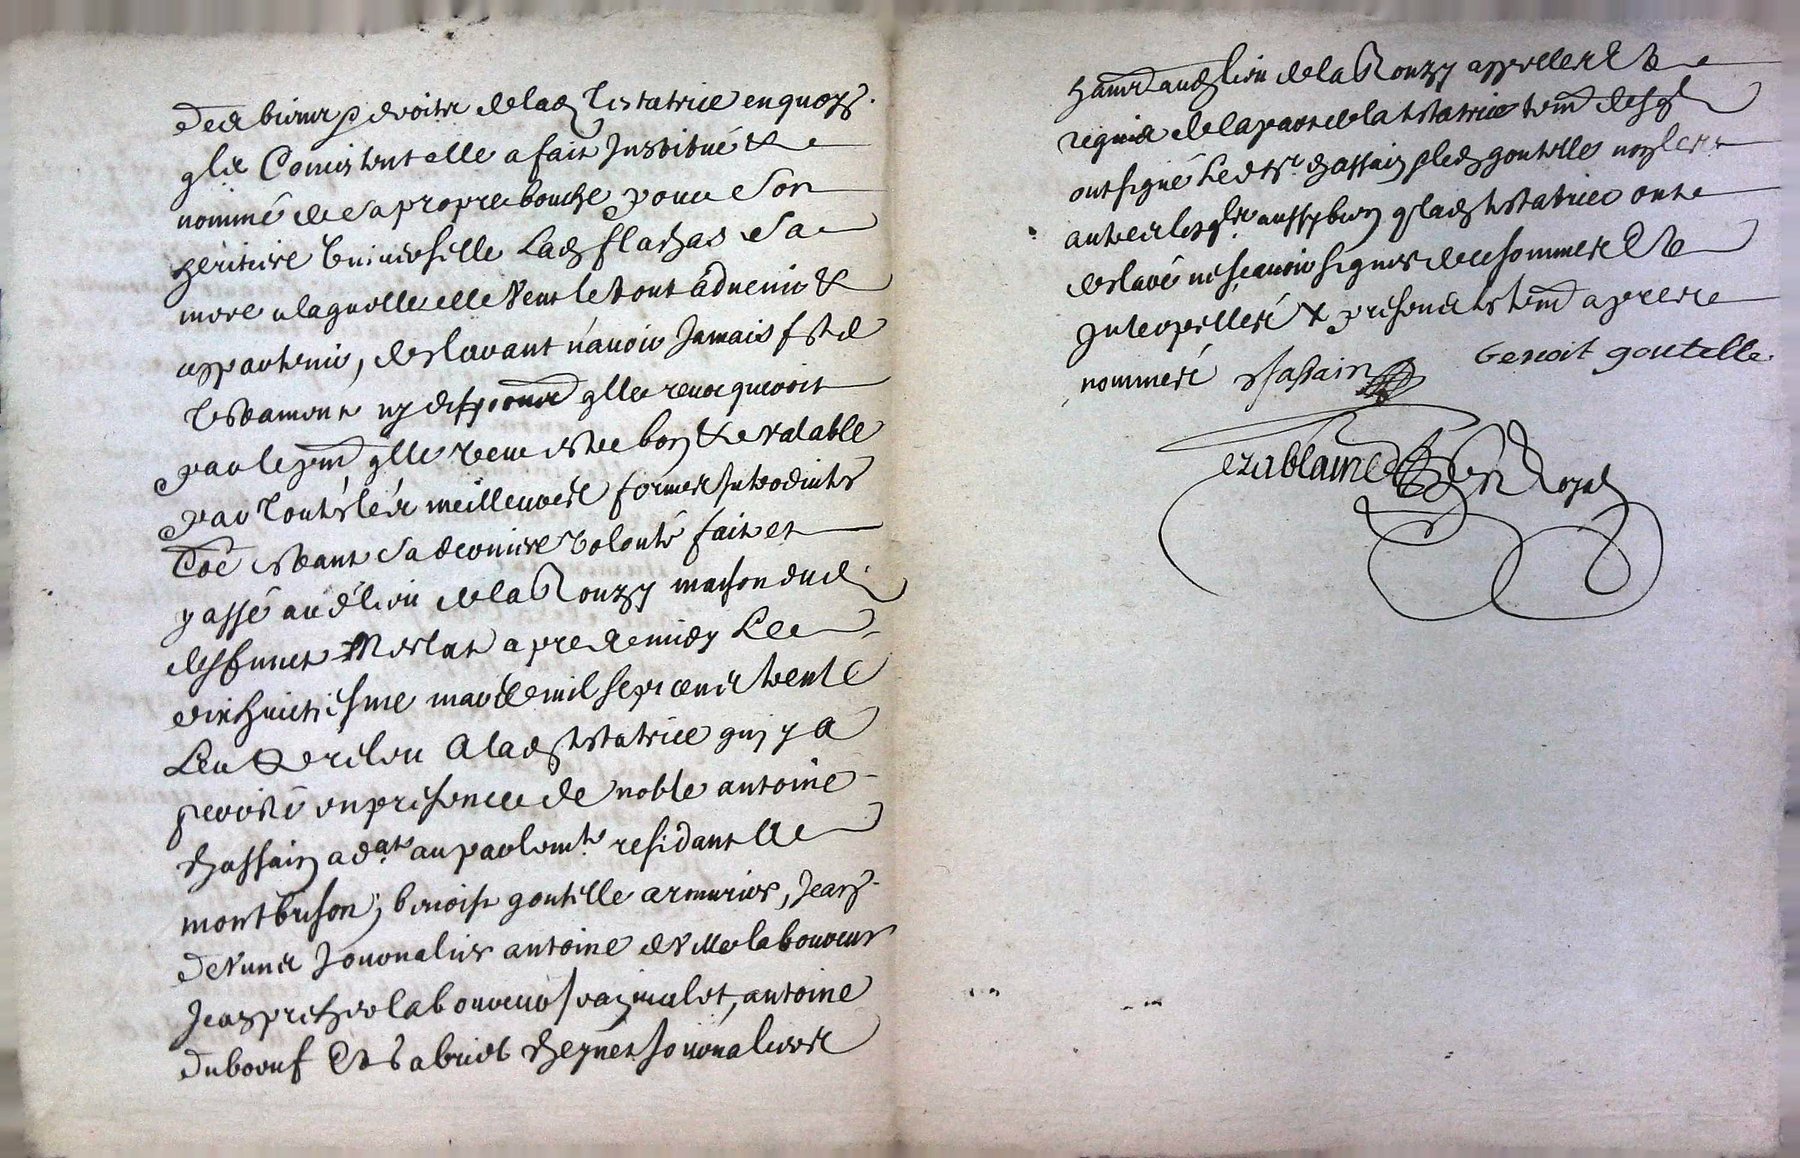 des biens & droits de lad testatrice en quoy
qlz Consistent elle a fait Institué &
nommé de sa propre bouche pour son
heritiere Universelle Lad flachas sa
mere a laquelle elle veut le tout advenir &
appartenir, declarant n'avoir Jamais fst d
testament ny disp qlle revocqueroit
par le pnt qlle veut estre bon & valable
par touttes les meilleures formes Introduites
Coe estant sa derniere volonté fait et
passé aud lieu de la Ronzy maison dud
deffunct Merlat apres midy Le
dixhuictiesme mars mil sept cents trente
Leu & relou A lad testatrice quy y a
percisté en presence de noble antoine
Chassain adat au parlemt residant A
montbrison, benoist goutelle armurier, Jean
Journalier antoine laboureur
Jean laboureur Jean mulet, antoine
duboeuf Et Gabriel Journaliers
hants aud lieu de la Ronzy appelles &
requis de la part de la testatrice tem desqls
ont signé Led sr Chassain & led goutelle non les
autres tesgs aussy bien q lad testatrice ont
declaré ne scavoir signer de ce sommes &
Interpelles & presents les tem apres
nommes Chassain Benoit goutelle
Royal